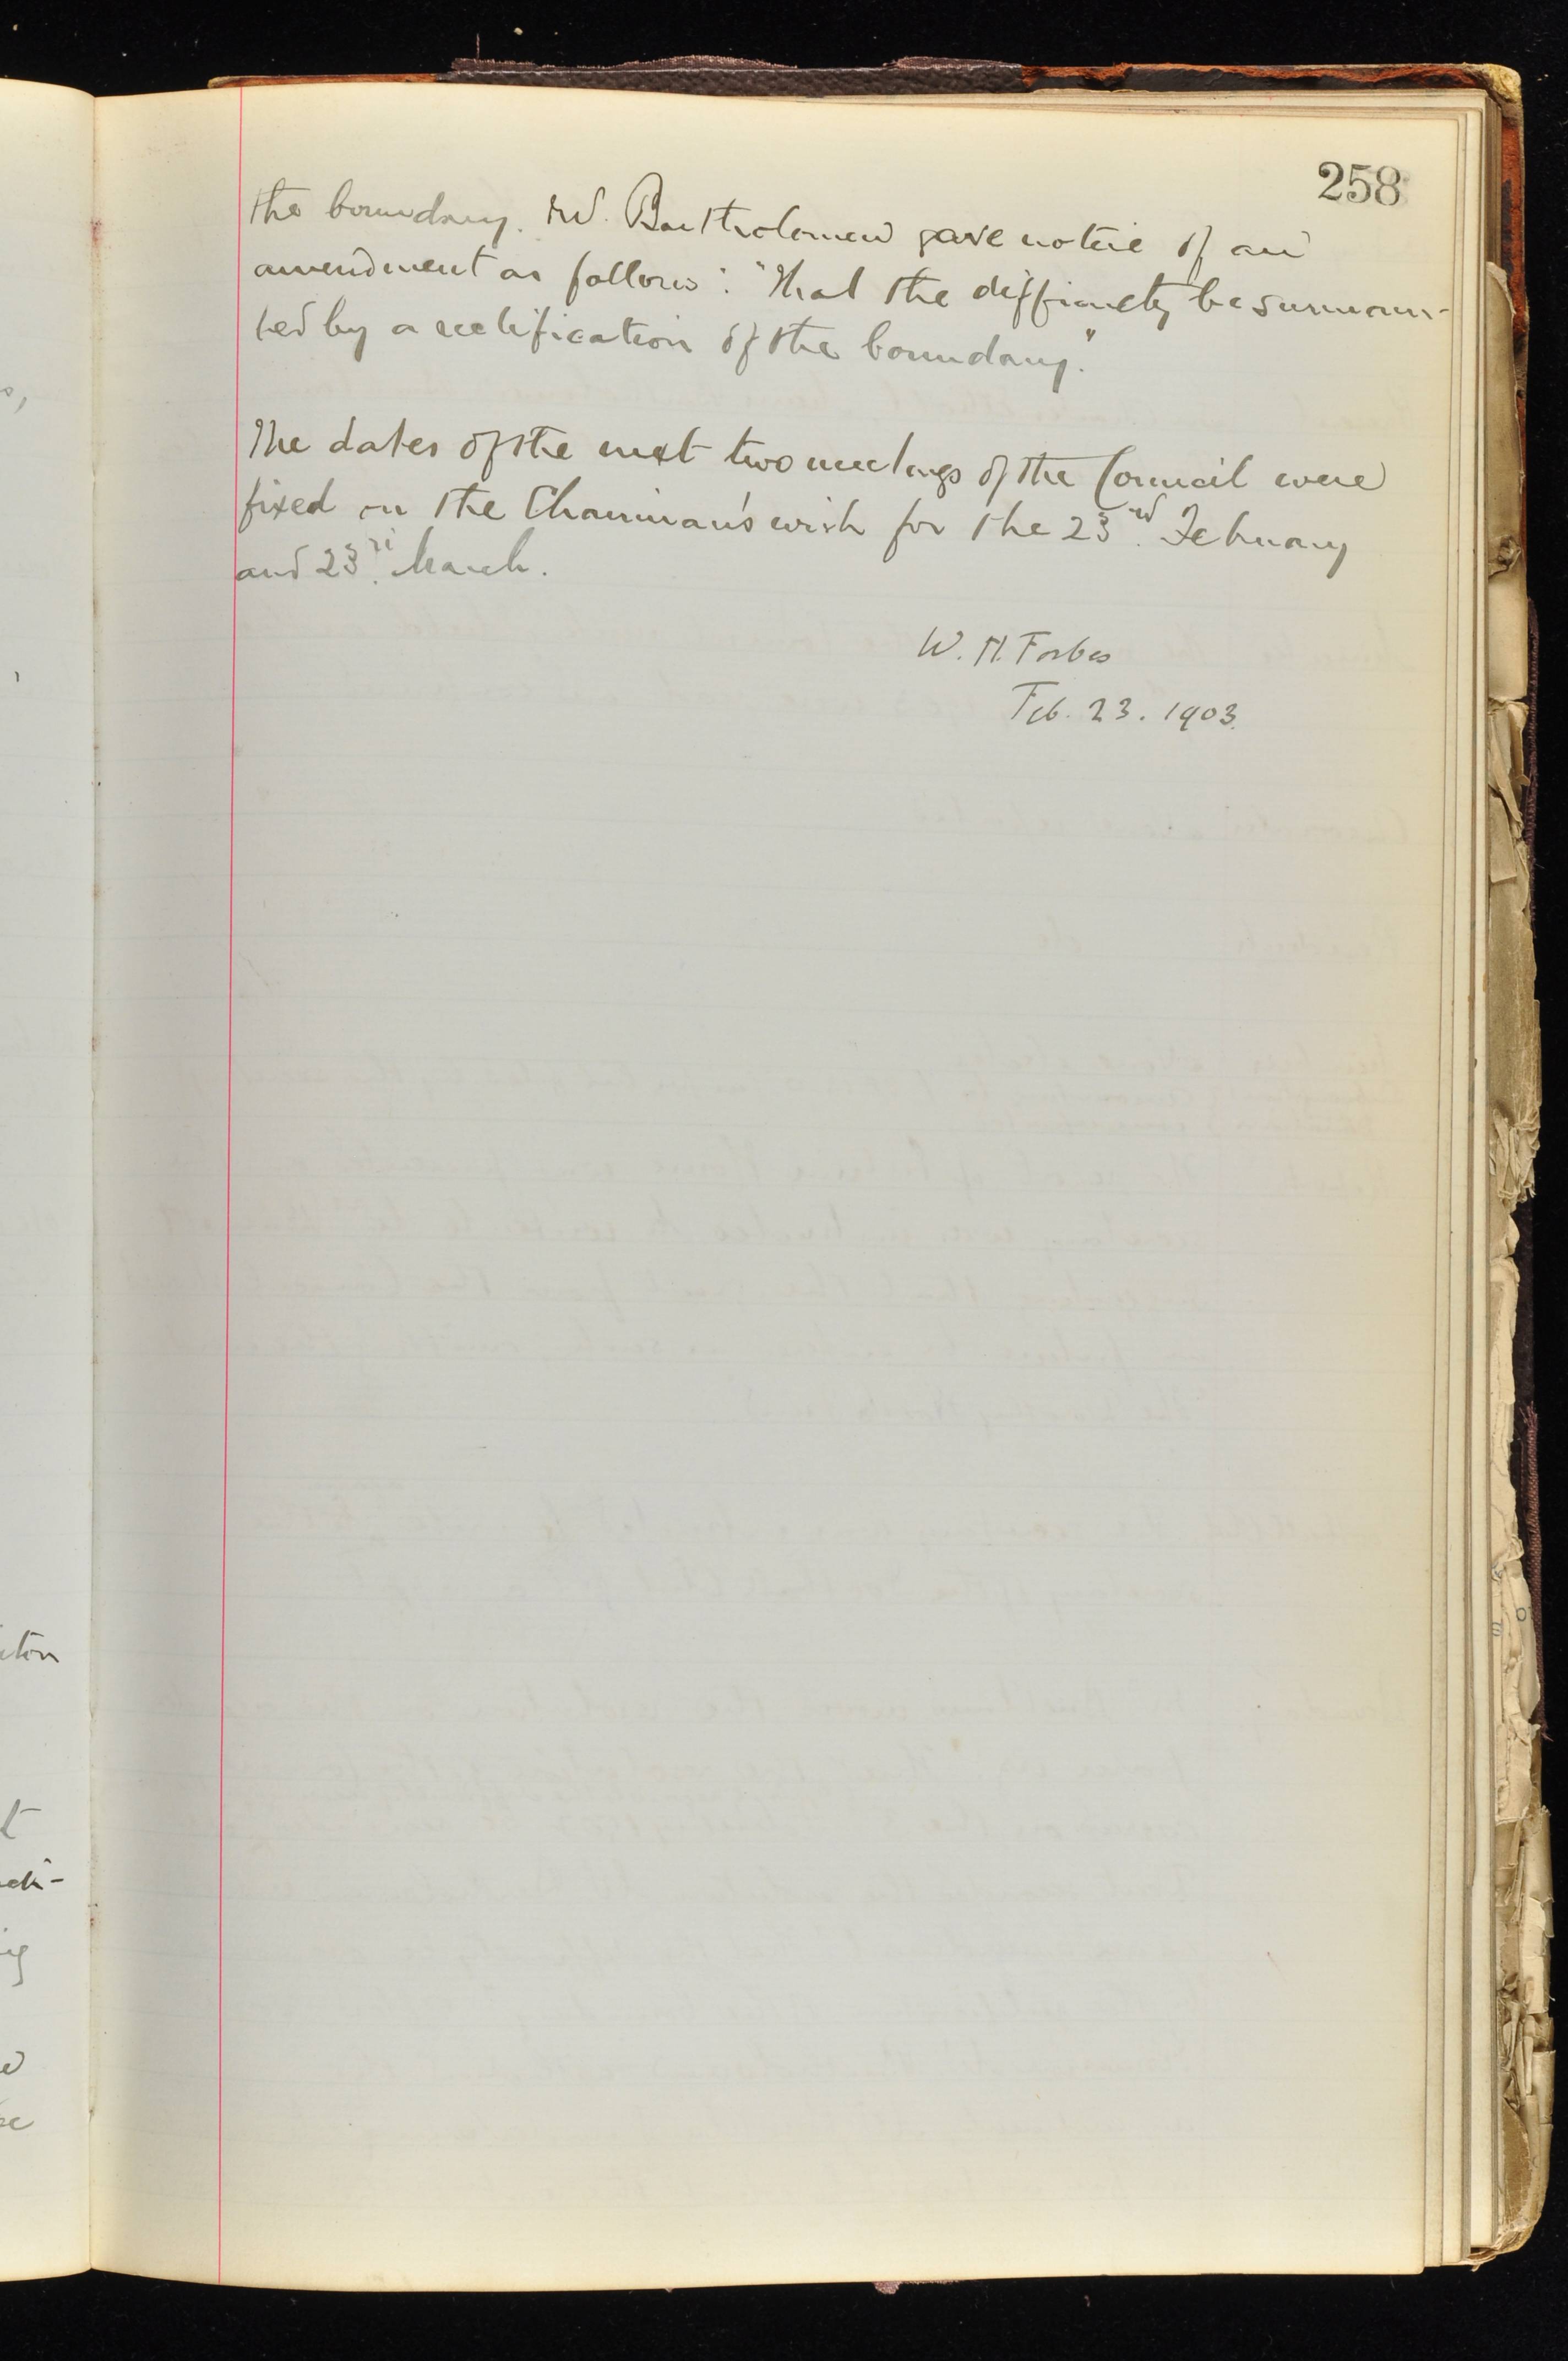 258
the boundary. W. Bartholomew gave notice of an
amendment as follows: "That the difficulty be surmoun-
ted by a rectification of the boundary."
The dates of the next two meetings of the Council were
fixed on the Chairman's wish for the 23rd. February
and 23rd. March.
W. H. Forbes
Feb. 23. 1903.